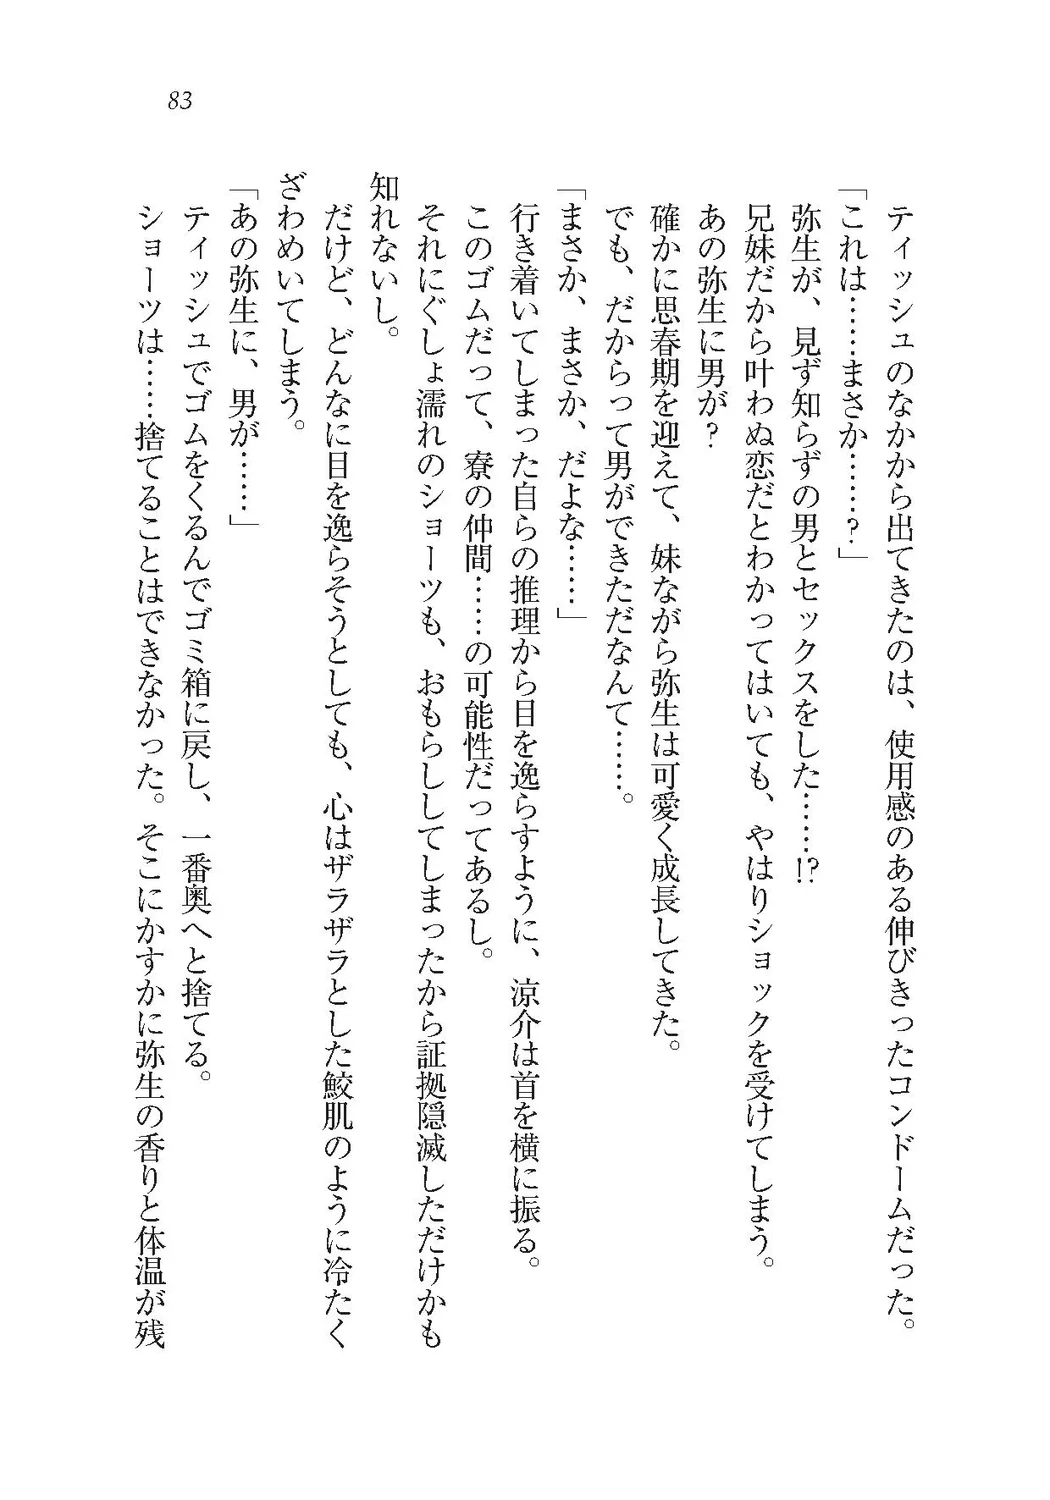 83
ティッシュのなかから出てきたのは、使用感のある伸びきったコンドームだった。
「これは……まさか……?」
弥生が、見ず知らずの男とセックスをした……!?
兄妹だから叶わぬ恋だとわかってはいても、やはりショックを受けてしまう。
あの弥生に男が?
確かに思春期を迎えて、妹ながら弥生は可愛く成長してきた。
でも、だからって男ができただなんて……。
「まさか、まさか、だよな……」
行き着いてしまった自らの推理から目を逸らすように、涼介は首を横に振る。
このゴムだって、寮の仲間……の可能性だってあるし。
それにぐしょ濡れのショーツも、おもらししてしまったから証拠隠滅しただけかも
知れないし。
だけど、どんなに目を逸らそうとしても、心はザラザラとした鮫肌のように冷たく
ざわめいてしまう。
「あの弥生に、男が……」
ティッシュでゴムをくるんでゴミ箱に戻し、一番奥へと捨てる。
ショーツは……捨てることはできなかった。そこにかすかに弥生の香りと体温が残